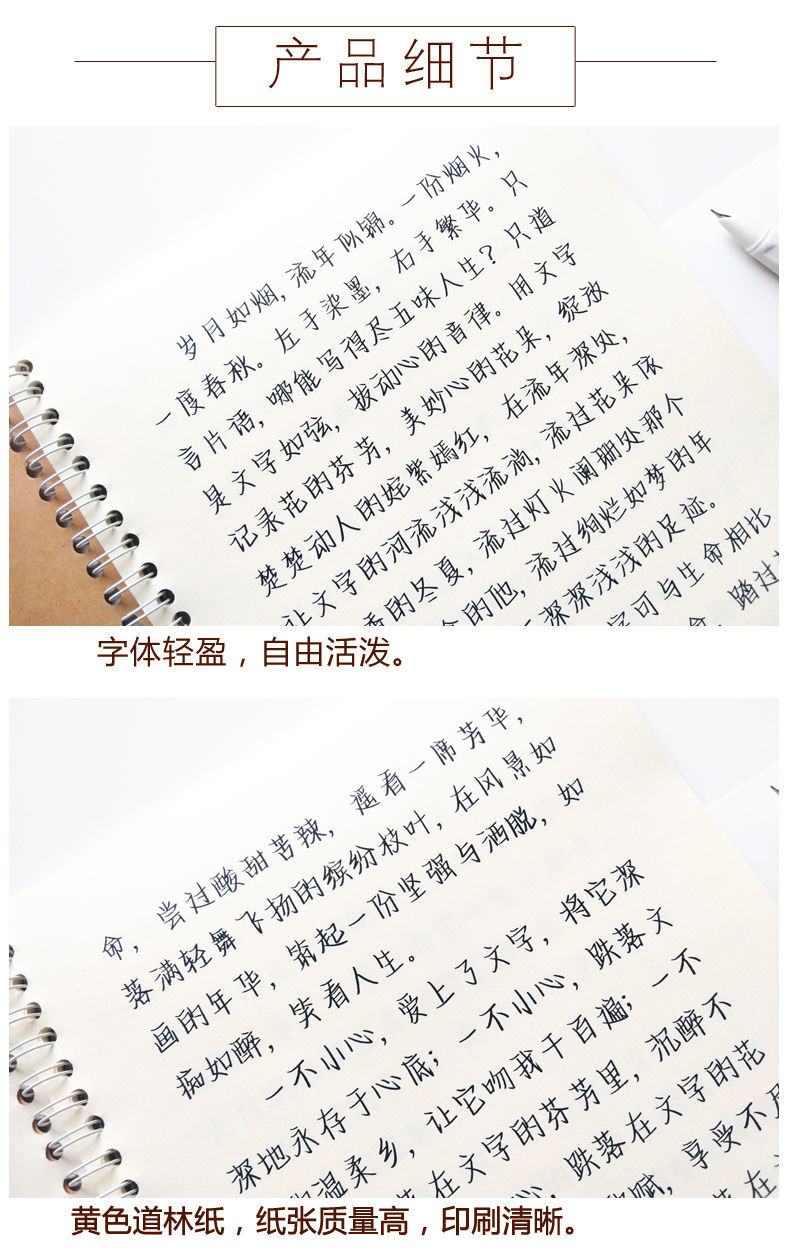 产品细节
岁月如烟,流年似锦。一份烟火,
一度春秋。左手染墨,右手繁华。只
言片语,哪能写得尽五味人生?只道
是文字如弦,拔动心的音律。用文字
记录花的芬芳,美妙心的花朵,绽放
楚楚动人的姹紫嫣红,在流年深处,
让文字的河流浅浅流淌,流过花朵依
香的冬夏,流过灯火阑珊处那个
的他,流过绚烂如梦的年
深深浅浅的足迹。
字可与生命相比
命,踏过
字体轻盈,自由活泼。
命,尝过酸甜苦辣,遥看一席芳华,
落满轻舞飞扬的缤纷枝叶,在风景如
画的年华,筑起一份坚强与洒脱,如
痴如醉,笑看人生。
一不小心,爱上了文字,将它深
深地永存于心底;一不小心,跌落文
温柔乡,让它吻我千百遍;一不
在文字的芬芳里,沉醉不
心,跌落在文字的花
赋,享受不尽
在
黄色道林纸,纸张质量高,印刷清晰。